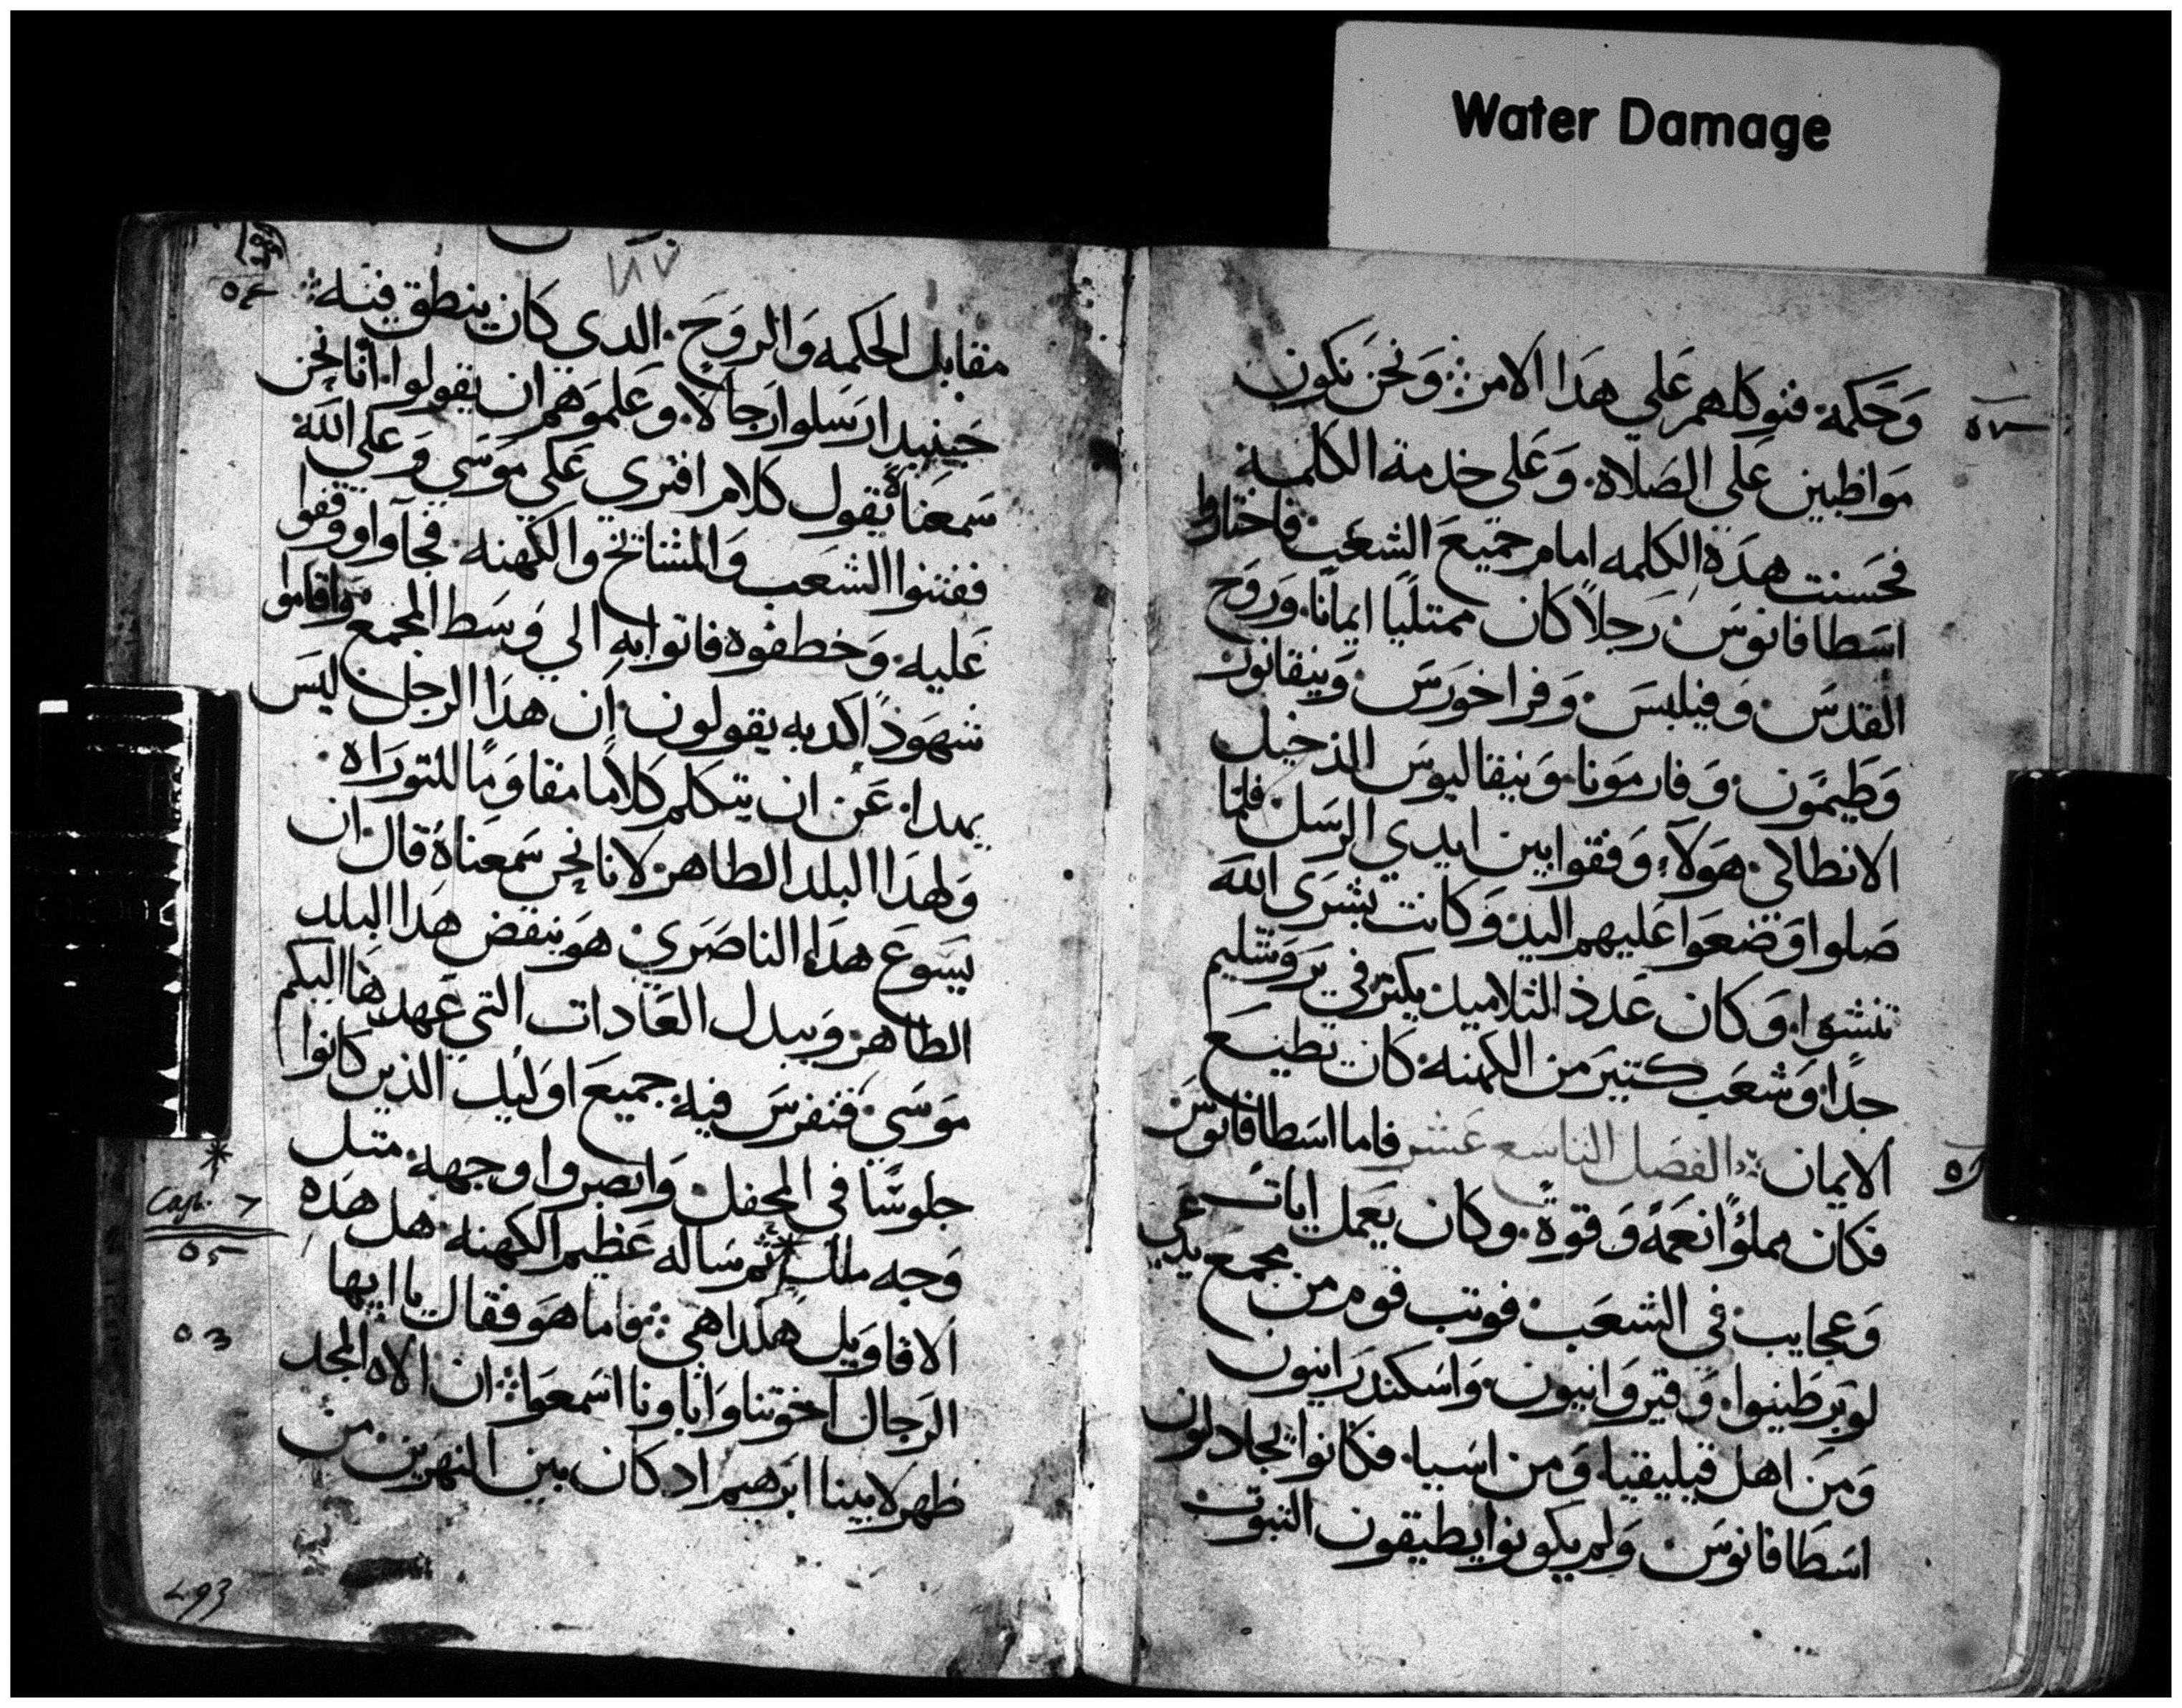 Water Damage
وحكمة فنوكلهم على هدا الامر ونحن نكون
مواظبين على الصلاة وعلى خدمة الكلمة
فحسنت هدة الكلمه امام جميع الشعب فاختاروا
اسطافانوس رجلاً كان ممتلياً ايمانا وروح
القدس وفيلبس وفراخورس ونيقانور
وطيمون وفارمونا ونيقاليوس الدخيل
الانطاكي هولاء وقفوا بين ايدي الرسل فلما
صلوا وضعوا عليهم اليد وكانت بشرى الله
تنشوا وكان عدد التلاميد يكثر في يروشليم
جداً وشعب كتير من الكهنه كان يطيع
الايمان الفصل التاسع عشر فاما اسطافانوس
فكان مملؤاً نعمةً وقوةً وكان يعمل ايات
وعجايب في الشعب فوتب قوم من مجمع يدعى
لوبرطينوا وقيروانيون واسكندرانيون
ومن اهل قيليقيا ومن اسيا فكانوا يجادلون
اسطافانوس ولم يكونوا يطيقون التبوت
مقابل الحكمه والروح الدي كان ينطق فيه
حينيد ارسلوا رجالا وعلموهم ان يقولوا انا نحن
سمعناة يقول كلام افترى على موسي وعلي الله
ففتنوا الشعب والمشائخ والكهنه فجآوا ووقفوا
عليه وخطفوه فاتوا به الي وسط المجمع واقاموا
شهوداً كدبه يقولون ان هدا الرجل ليس
يهدا عن ان يتكلم كلاما مقاوماً للتوراه
ولهدا البلد الطاهر لانا نحن سمعناة قال ان
يسوع هدا الناصري هو ينقض هدا البلد
الطاهر ويبدل العادات التي عهدها اليكم
موسي فتفرس فيه جميع اوليك الذين كانوا
جلوسًا في المحفل وابصروا وجهه متل
وجه ملك ثم ساله عظيم الكهنه هل هده
الاقاويل هكدا هي فاما هو فقال يا ايها
الرجال اخوتنا واباونا اسمعوا ان الاه المجد
ظهر لابينا ابرهيم اد كان بين النهرين من
Cap. 7
293